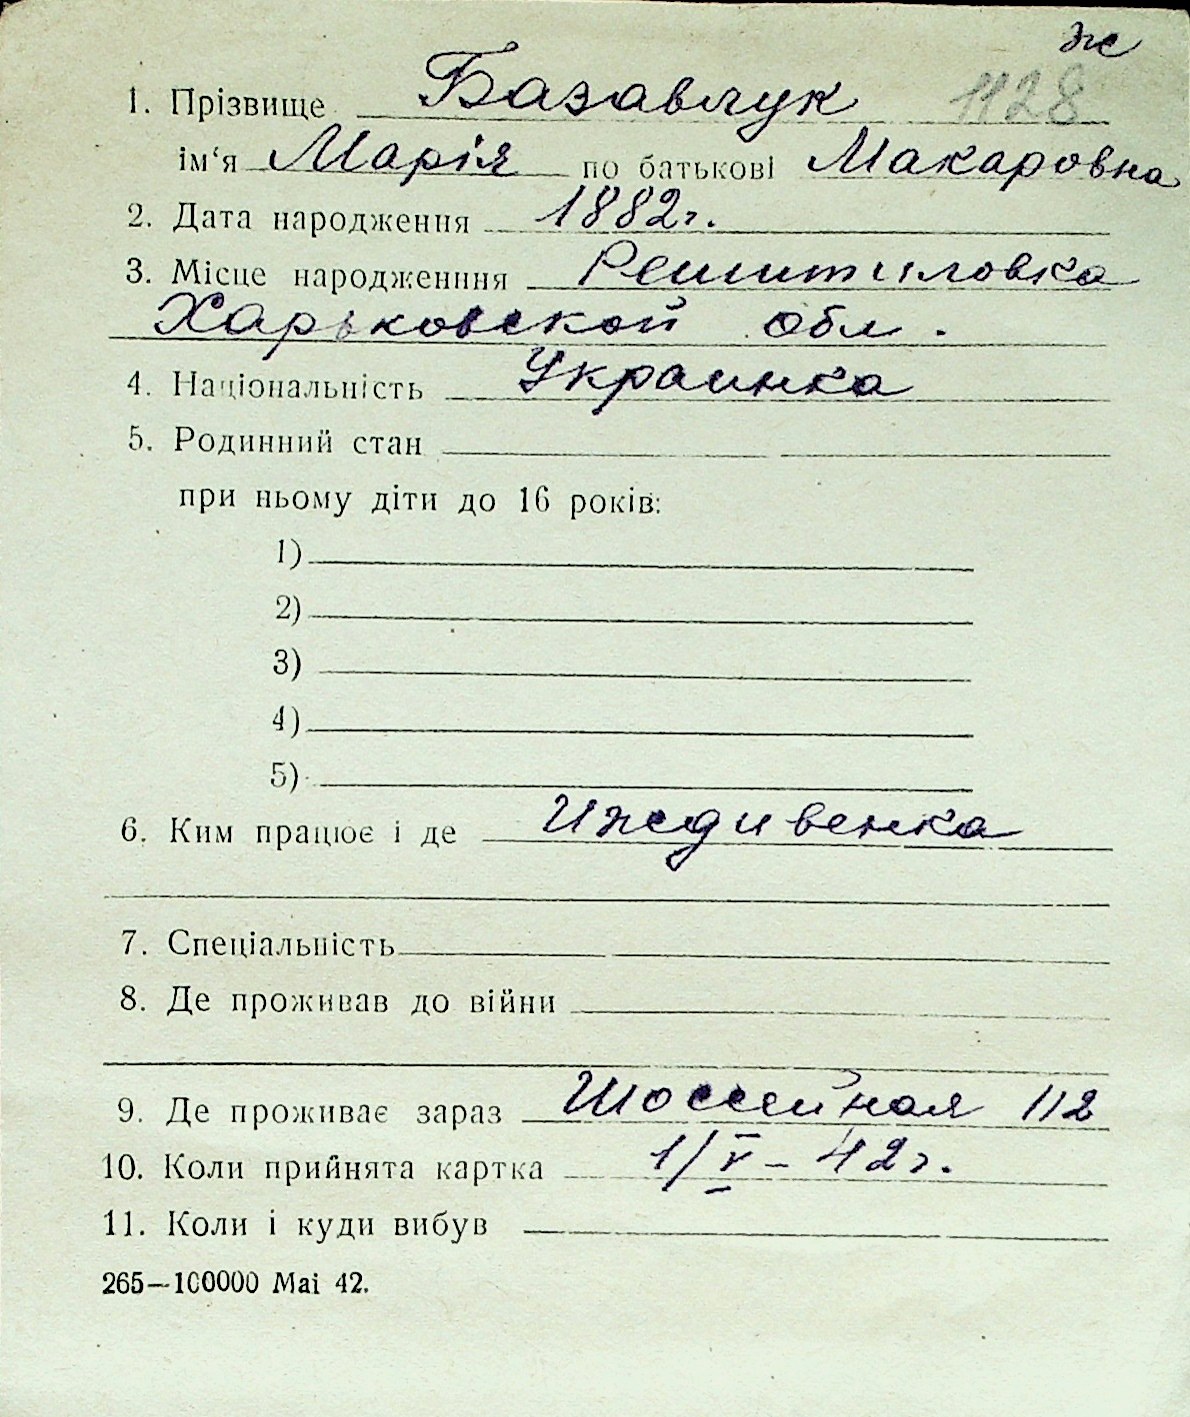 ж
1. Прізвище Базавлук 1128
ім‘я Марія по батькові Макаровна
2. Дата народження 1882г.
3. Місце народженння Решитиловка
Харьковской обл.
4. Національність Украинка
5. Родинний стан
при ньому діти до 16 років:
1)
2)
3)
4)
5)
6. Ким працює і де Иждивенка
7. Спеціальність
8. Де проживав до війни
9. Де проживає зараз Шоссейная 112
10. Коли прийнята картка 1/V - 42г.
11. Коли і куди вибув
265—100000 Mai 42.